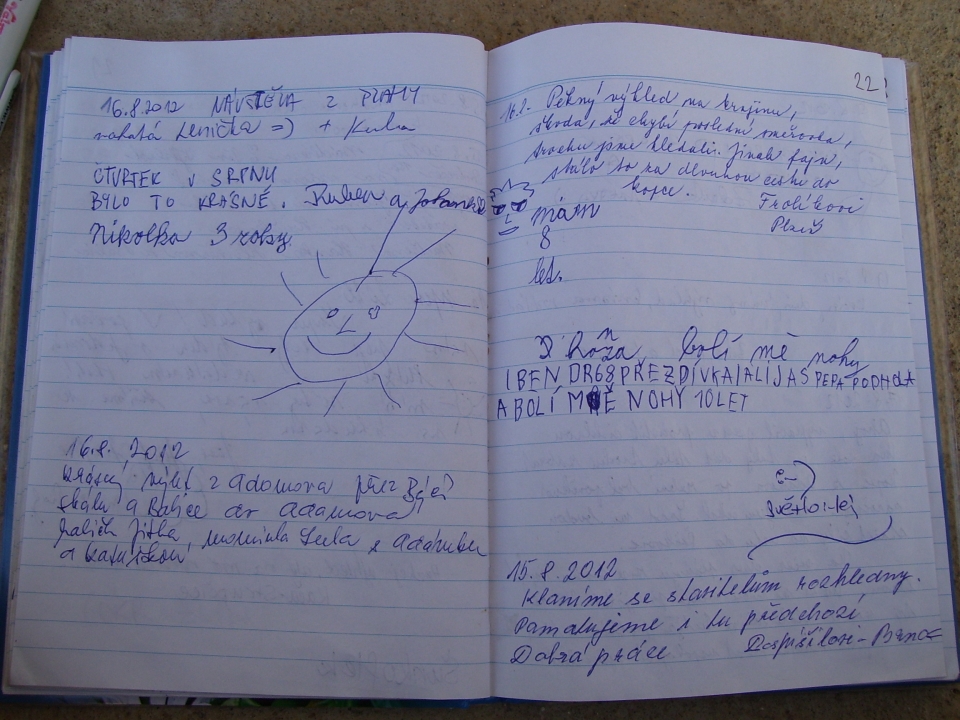 16.8.2012 NÁVŠTĚVA Z PRAHY
Lenička =) + Kuba
ČTVRTEK V SRPNU
BYLO TO KRÁSNÉ. Ruben a
Nikolka 3 roky
16.8. 2012
Krásný výlet z Adamova přez Býčí
skálu a Babice do Adamova
babička Jitka,
a
22
16.8. Pěkný výhled na krajinu,
škoda, že chybí poslední směrovka,
trochu jsme hledali. Jinak fajn,
stálo to za dlouhou cestu do
kopce. Frolíkovi
Plzeň
mám
8
let.
bolí mě nohy
I BEN DR68 PŘEZDÍVKA/ALIJAS PEPA PODHOLA
A BOLÍ MĚ NOHY 10 LET
15.8.2012
Klaníme se stavitelům rozhledny.
Pamatujeme i tu předchozí
Dobrá práce Pospíšilovi - Brno